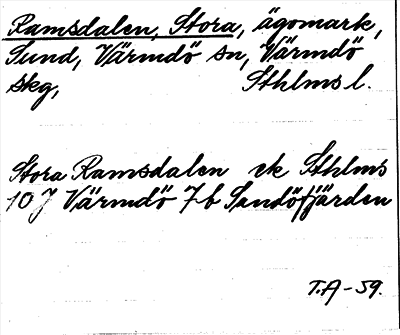 Ramsdalen, Stora, ägomark,
Sund, Värmdö sn, Värmdö
skg, Sthlms l.
Stora Ramsdalen ek Sthlms
10 J Värmdö 7b Sandöfjärden
T.A-59.